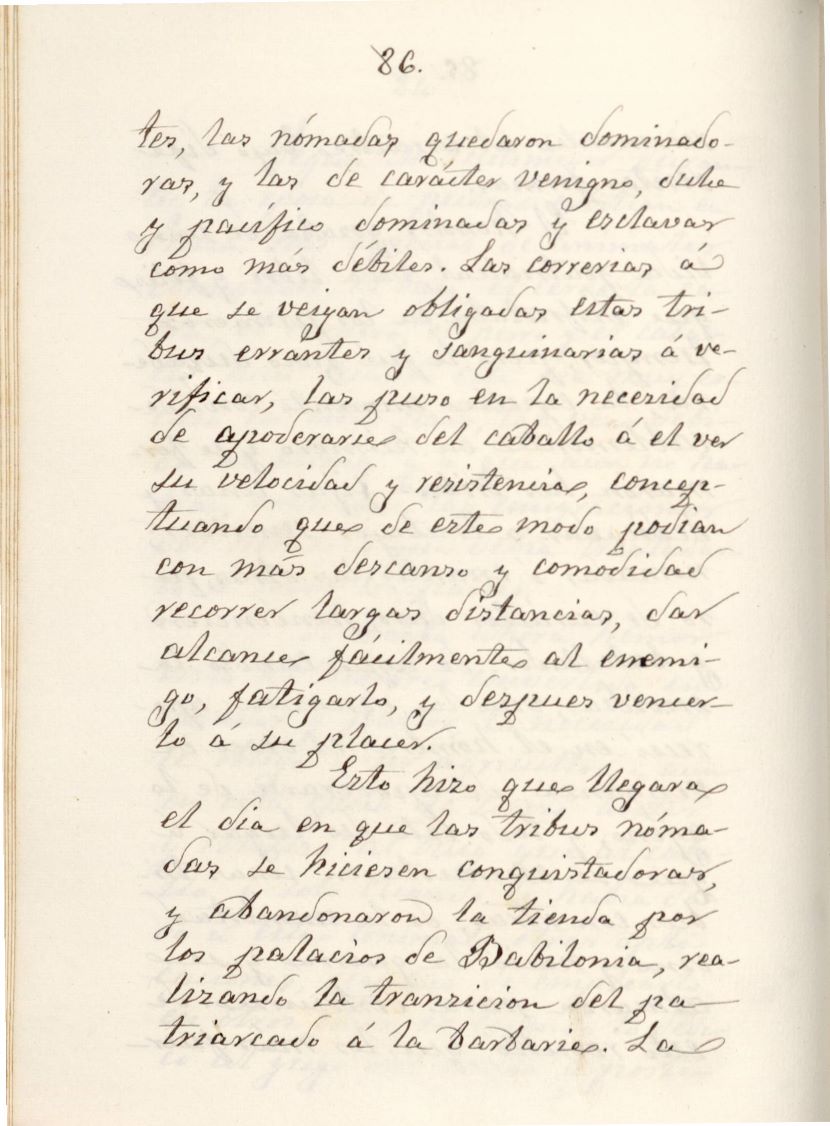 86.
tes, las nómadas quedaron dominado-
ras, y las de carácter venigno, dulce
y pacífico dominadas y esclavas
como más débiles. Las correrias á
que se veigan obligadas estas tri-
bus errántes y sanguinarias á ve-
rificar, las puso en la necesidad
de apoderarse del caballo á el ver
su velocidad y resistencia, concep-
tuando que de este modo podian
con más descanso y comodidad
recorrer largas distancias, dar
alcance fácilmente al enemi-
go, fatigarlo, y despues vencer-
lo á su placer.
Esto hizo que llegara
el dia en que las tribus nóma-
das se hiciesen conquistadoras,
y abandonaron la tienda por
los palacios de Babilonia, rea-
lizando la transicion del pa-
triarcado á la barbarie. La